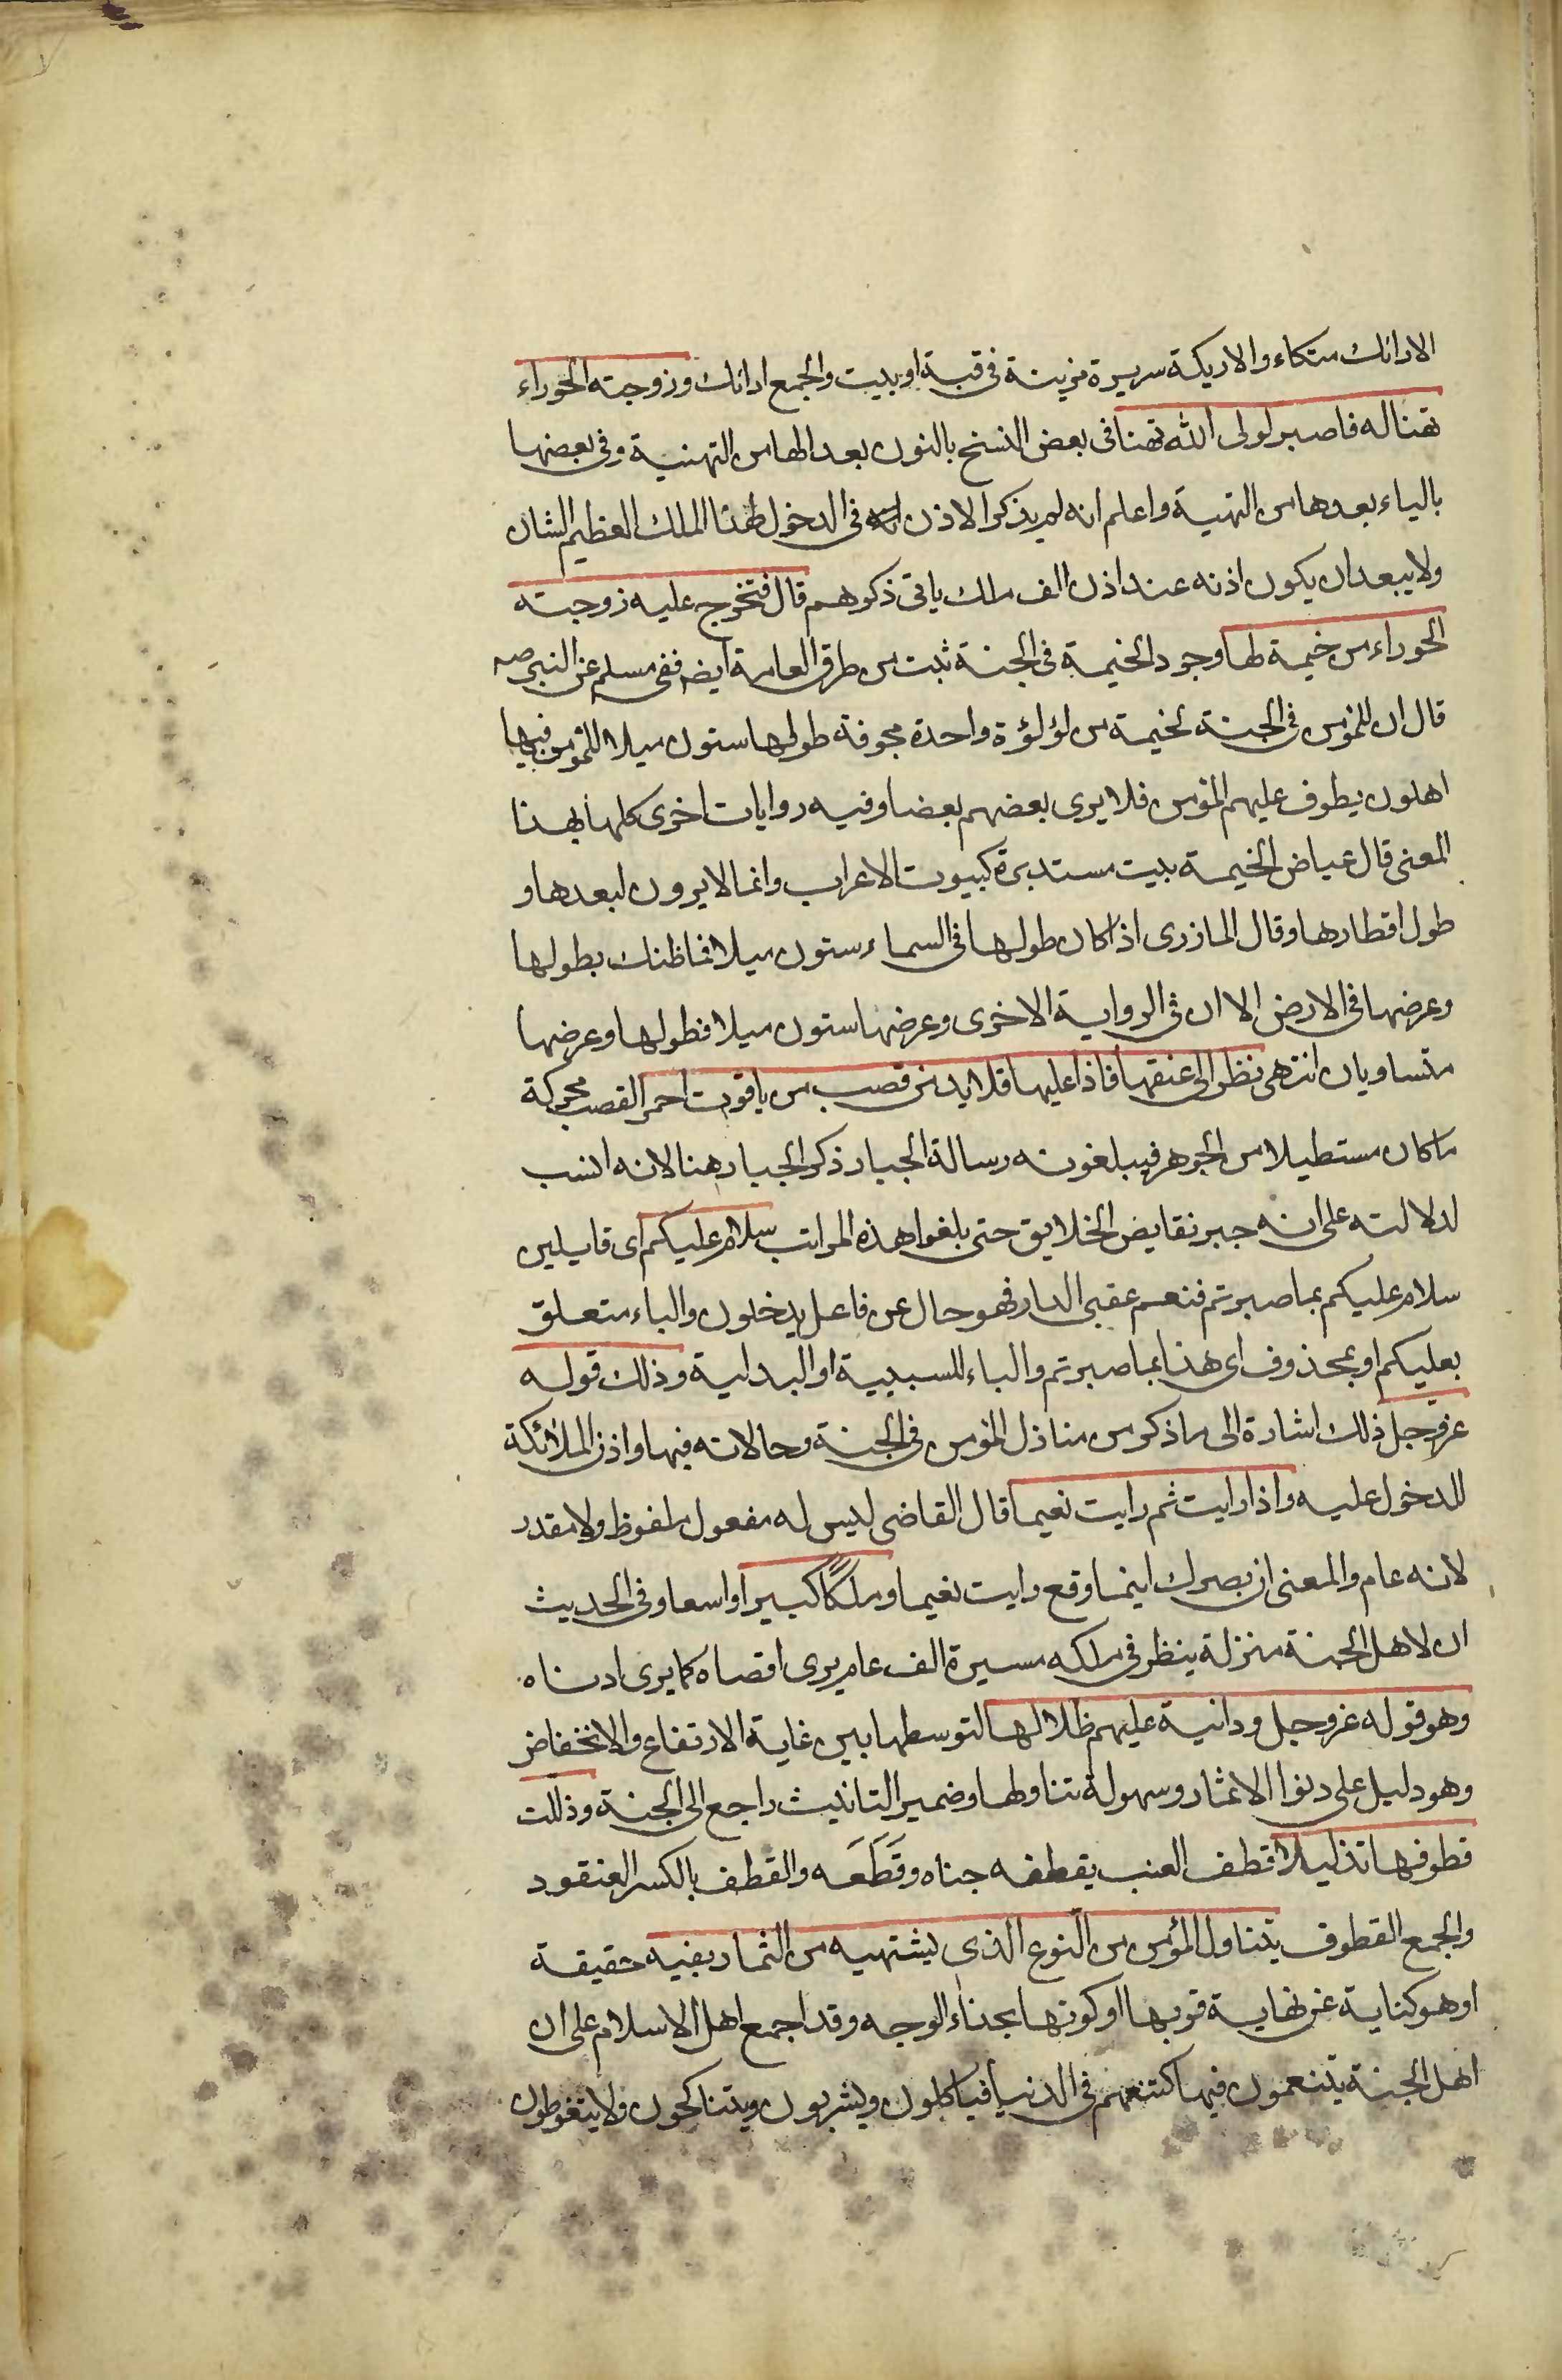 الارائك متكاء والاريكة سريرة مزينة فى قبة او بيت والجمع ارائك وزوجته الحوراء
تهنا له فاصبر لولى الله تهنا فى بعض النسخ بالنون بعد الها من التهنية وفى بعضها
بالياء بعدها من التهية واعلم انه لم يذكر الاذن له فى الدخول لهذا الملك العظيم الشان
ولا يبعد ان يكون اذنه عند اذن الف ملك ياتى ذكرهم قال فتخرج عليه زوجته
الحوراء من خيمة لها وجود الخيمة فى الجنة ثبت من طرق العامة ايضه ففى مسلم عن النبى صه
قال ان للمؤمن فى الجنة لخيمة من لؤلؤة واحدة مجوفة طولها ستون ميلا للمؤمن فيها
اهلون يطوف عليهم المؤمن فلا يرى بعضهم بعضا وفيه روايات اخرى كلها بهذا
المعنى قال عياض الخيمة بيت مستديرة كبيوت الاعراب وانما لا يرون لبعدها و
طول اقطارها وقال المازرى اذا كان طولها فى السماء ستون ميلا فما ظنك بطولها
وعرضها فى الارض الا ان فى الرواية الاخرى وعرضها ستون ميلا فطولها وعرضها
متساويان انتهى نظر الى عنقها فاذا عليها قلايد من قصب من ياقوت احمر القصب محركة
ما كان مستطيلا من الجوهر فيبلغونه رسالة الجبار ذكر الجبار هنا لانه انسب
لدلالته على انه جبر نقايض الخلايق حتى بلغوا هذه المراتب سلام عليكم اى قايلين
سلام عليكم بما صبرتم فنعم عقبى الدار فهو حال عن فاعل يدخلون والباء متعلق
بعليكم او بمحذوف اى هذا بما صبرتم والباء للسببية او البدلية وذلك قوله
عز وجل ذلك اشارة الى ما ذكر من منازل المؤمن فى الجنة وحالاته فيها واذن الملائكة
للدخول عليه واذا رايت ثم رايت نعيما قال القاضى ليس له مفعول ملفوظ ولا مقدر
لانه عام والمعنى ان بصرك اينما وقع رايت نعيما وملكًا كبيرا واسعا وفى الحديث
ان لاهل الجنة منزلة ينظر فى ملكه مسيرة الف عام يرى اقصاه كما يرى ادناه
وهو قوله عز وجل ودانية عليهم ظلالها لتوسطها بين غاية الارتفاع والانخفاض
وهو دليل على دنوا الاثمار وسهولة تناولها وضمير التانيث راجع الى الجنة وذللت
قطوفها تذليلا قطف العنب يقطفه جناه وقَطَعَه والقطف بالكسر العنقود
والجمع القطوف يتناول المؤمن من النوع الذى يشتهيه من الثمار بفيه حقيقة
او هو كناية عن نهاية قربها او كونها بحذاء الوجه وقد اجمع اهل الاسلام على ان
اهل الجنة يتنعمون فيها كتنعمهم فى الدنيا فياكلون ويشربون ويتناكحون ولا يتغوطون